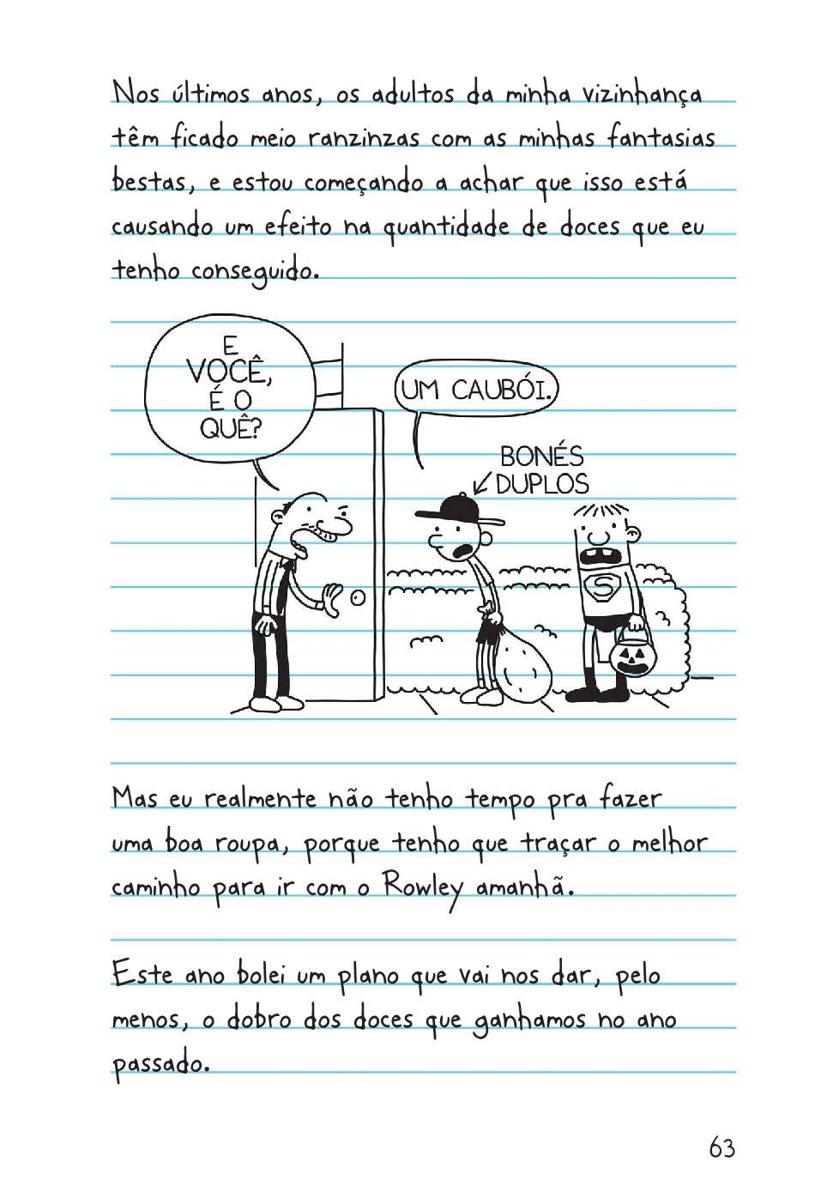 Nos últimos anos, os adultos da minha vizinhança
têm ficado meio ranzinzas com as minhas fantasias
bestas, e estou começando a achar que isso está
causando um efeito na quantidade de doces que eu
tenho conseguido.
E
VOCÊ,
É O
QUÊ?
UM CAUBÓI.
BONÉS
DUPLOS
S
Mas eu realmente não tenho tempo pra fazer
uma boa roupa, porque tenho que traçar o melhor
caminho para ir com o Rowley amanhã.
Este ano bolei um plano que vai nos dar, pelo
menos, o dobro dos doces que ganhamos no ano
passado.
63